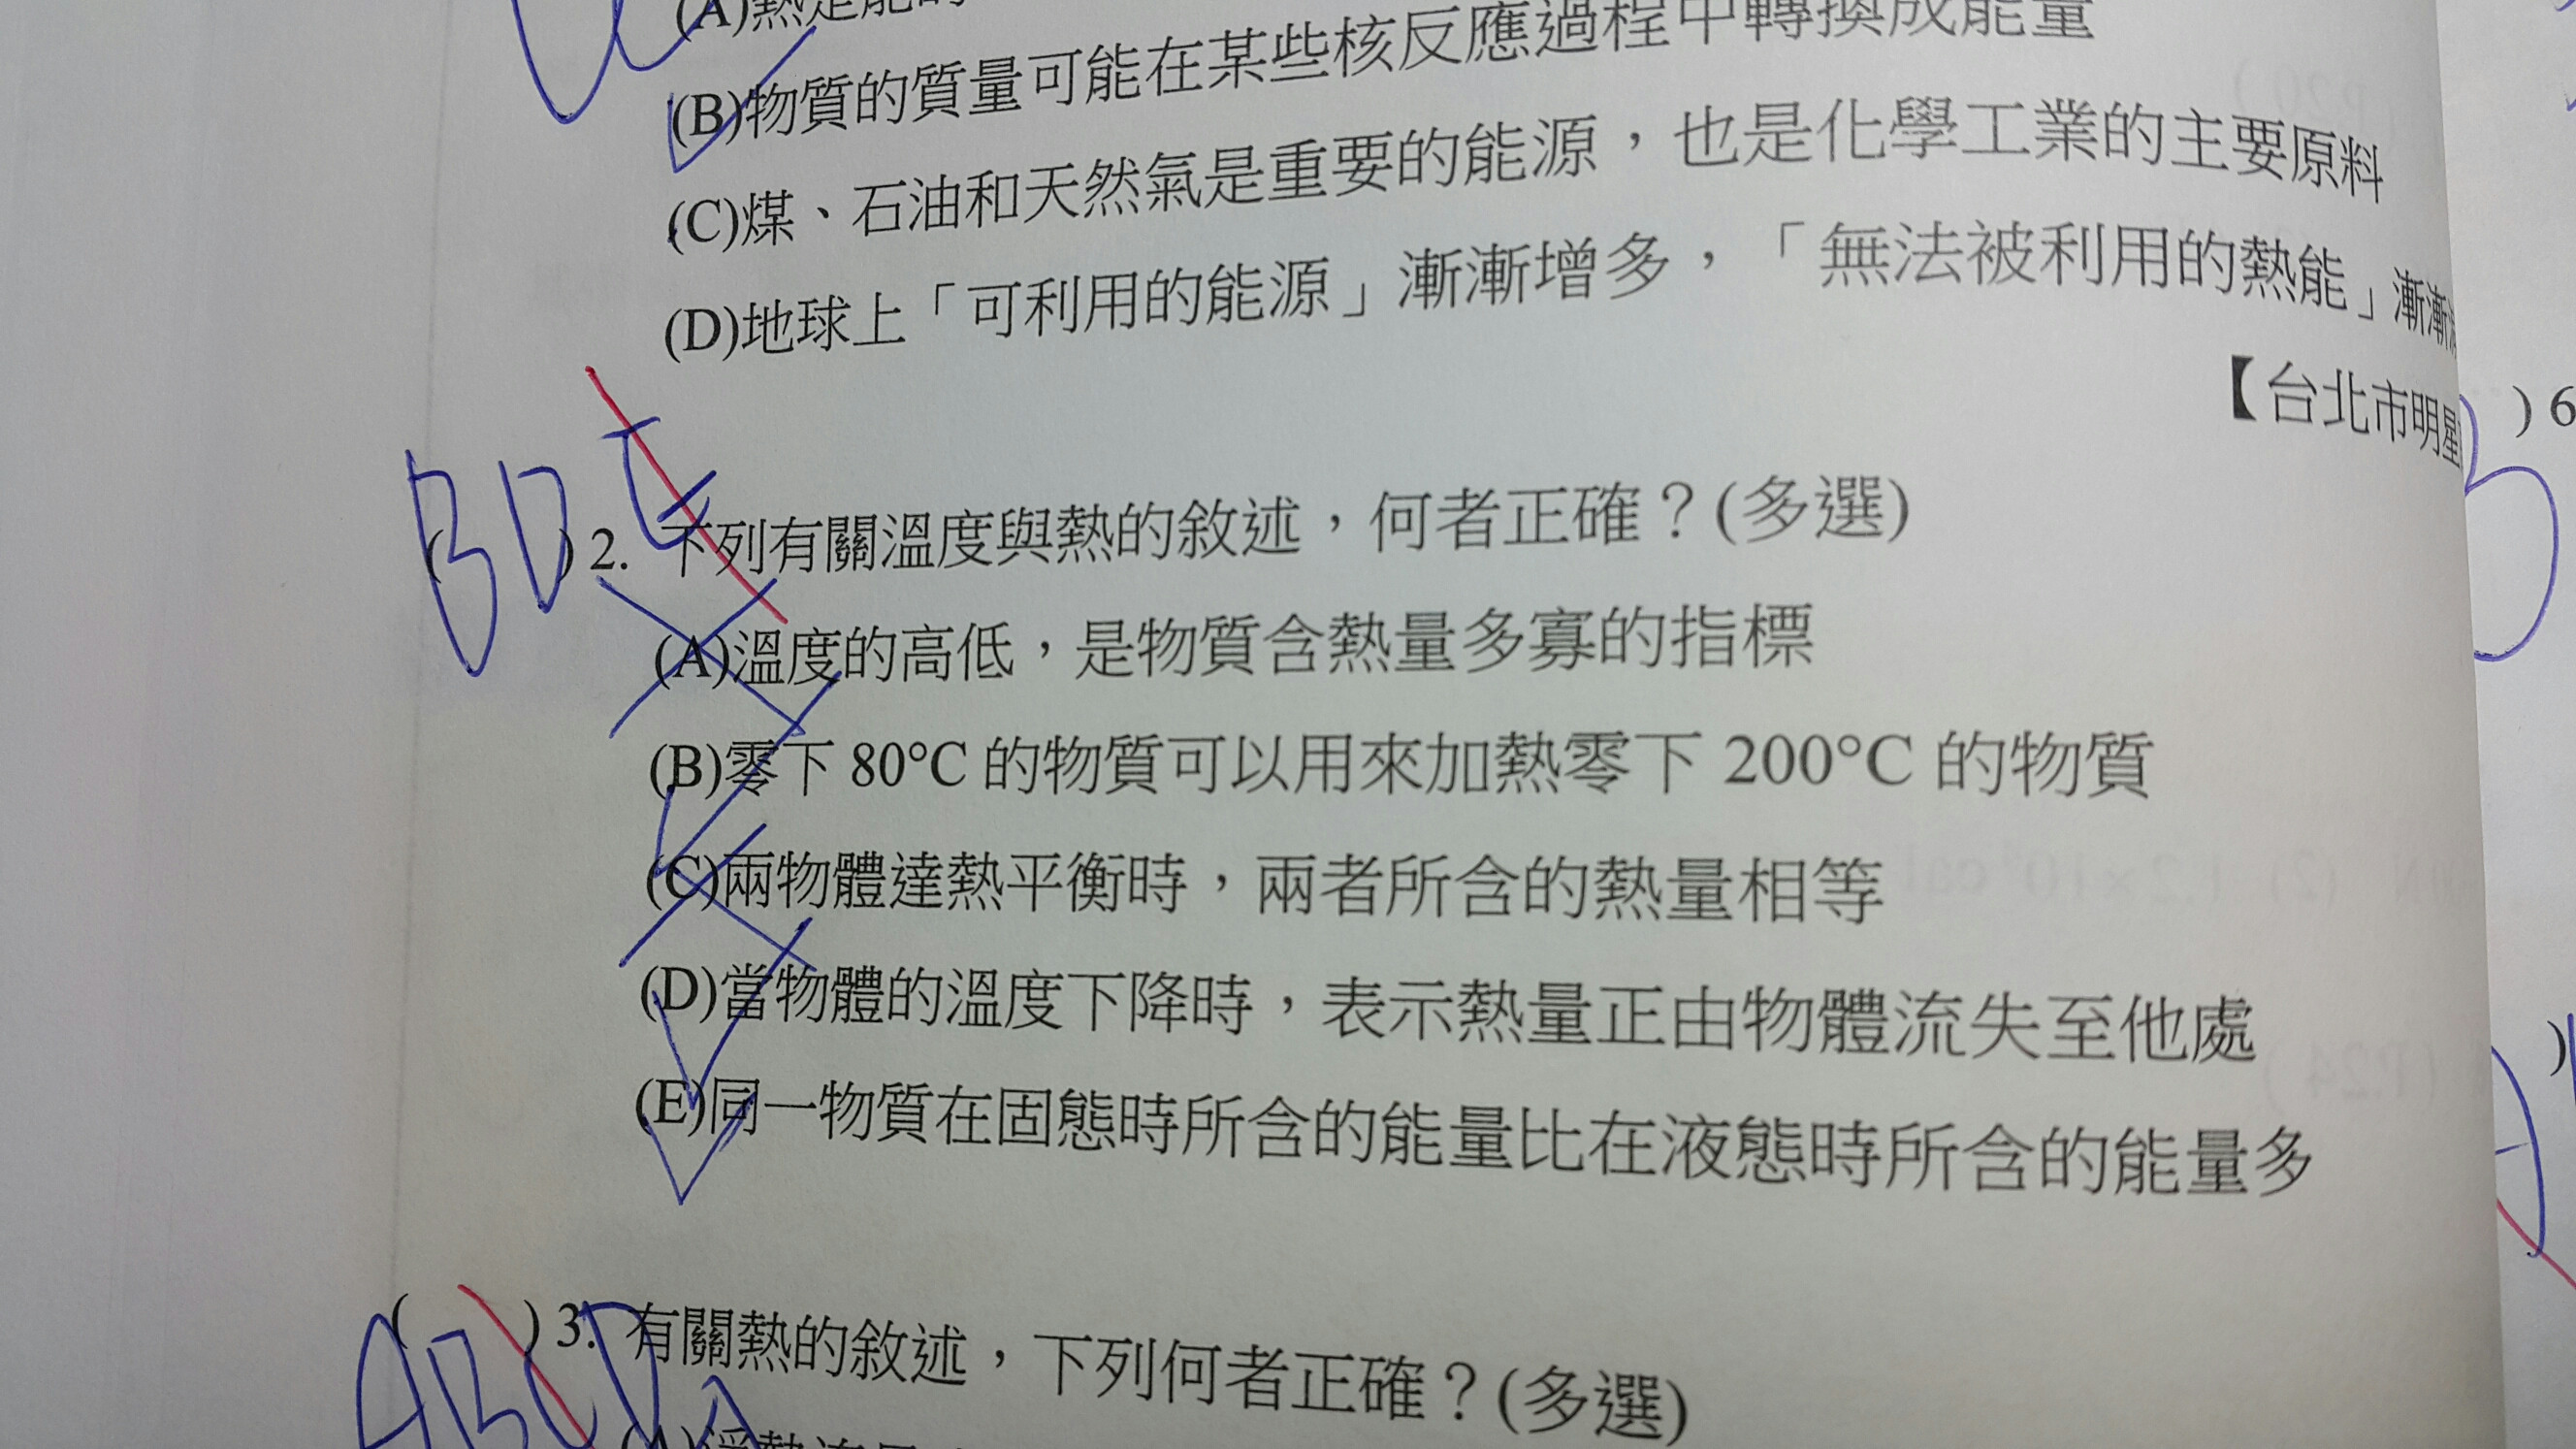 (A)熱是能的
(B)物質的質量可能在某些核反應過程中轉換成能量
(C)煤、石油和天然氣是重要的能源，也是化學工業的主要原料
(D)地球上「可利用的能源」漸漸增多，「無法被利用的熱能」漸漸
【台北市明星
) 6
BDE
( ) 2. 下列有關溫度與熱的敘述，何者正確？(多選)
(A)溫度的高低，是物質含熱量多寡的指標
(B)零下 80°C 的物質可以用來加熱零下 200°C 的物質
(C)兩物體達熱平衡時，兩者所含的熱量相等
(D)當物體的溫度下降時，表示熱量正由物體流失至他處
(E)同一物質在固態時所含的能量比在液態時所含的能量多
( ) 3. 有關熱的敘述，下列何者正確？(多選)
ABCD